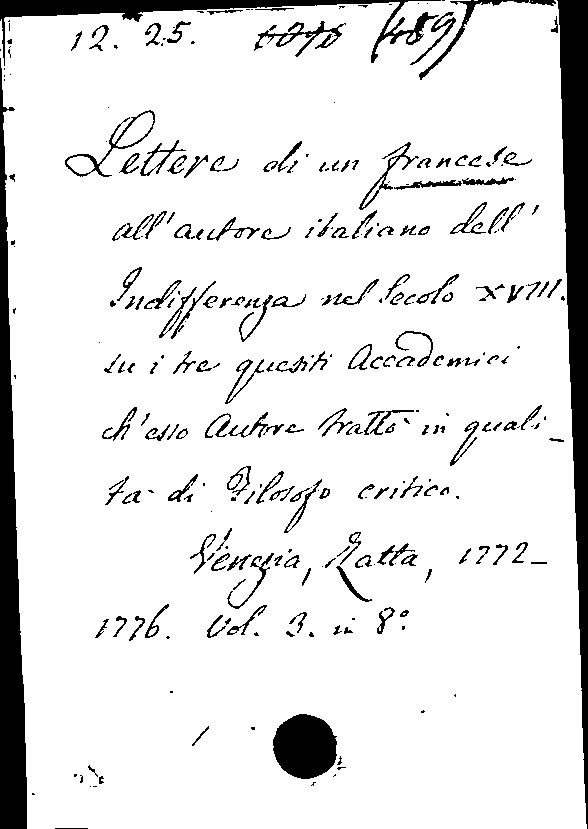 12. 25. (489)
Lettere di un francese
all'autore italiano dell'
Indifferenza nel Secolo XVIII.
su i tre quesiti Accademici
ch'esso Autore trattò in quali_
tà di Filosofo critico.
Venezia, Zatta, 1772_
1776. Vol. 3. in 8º